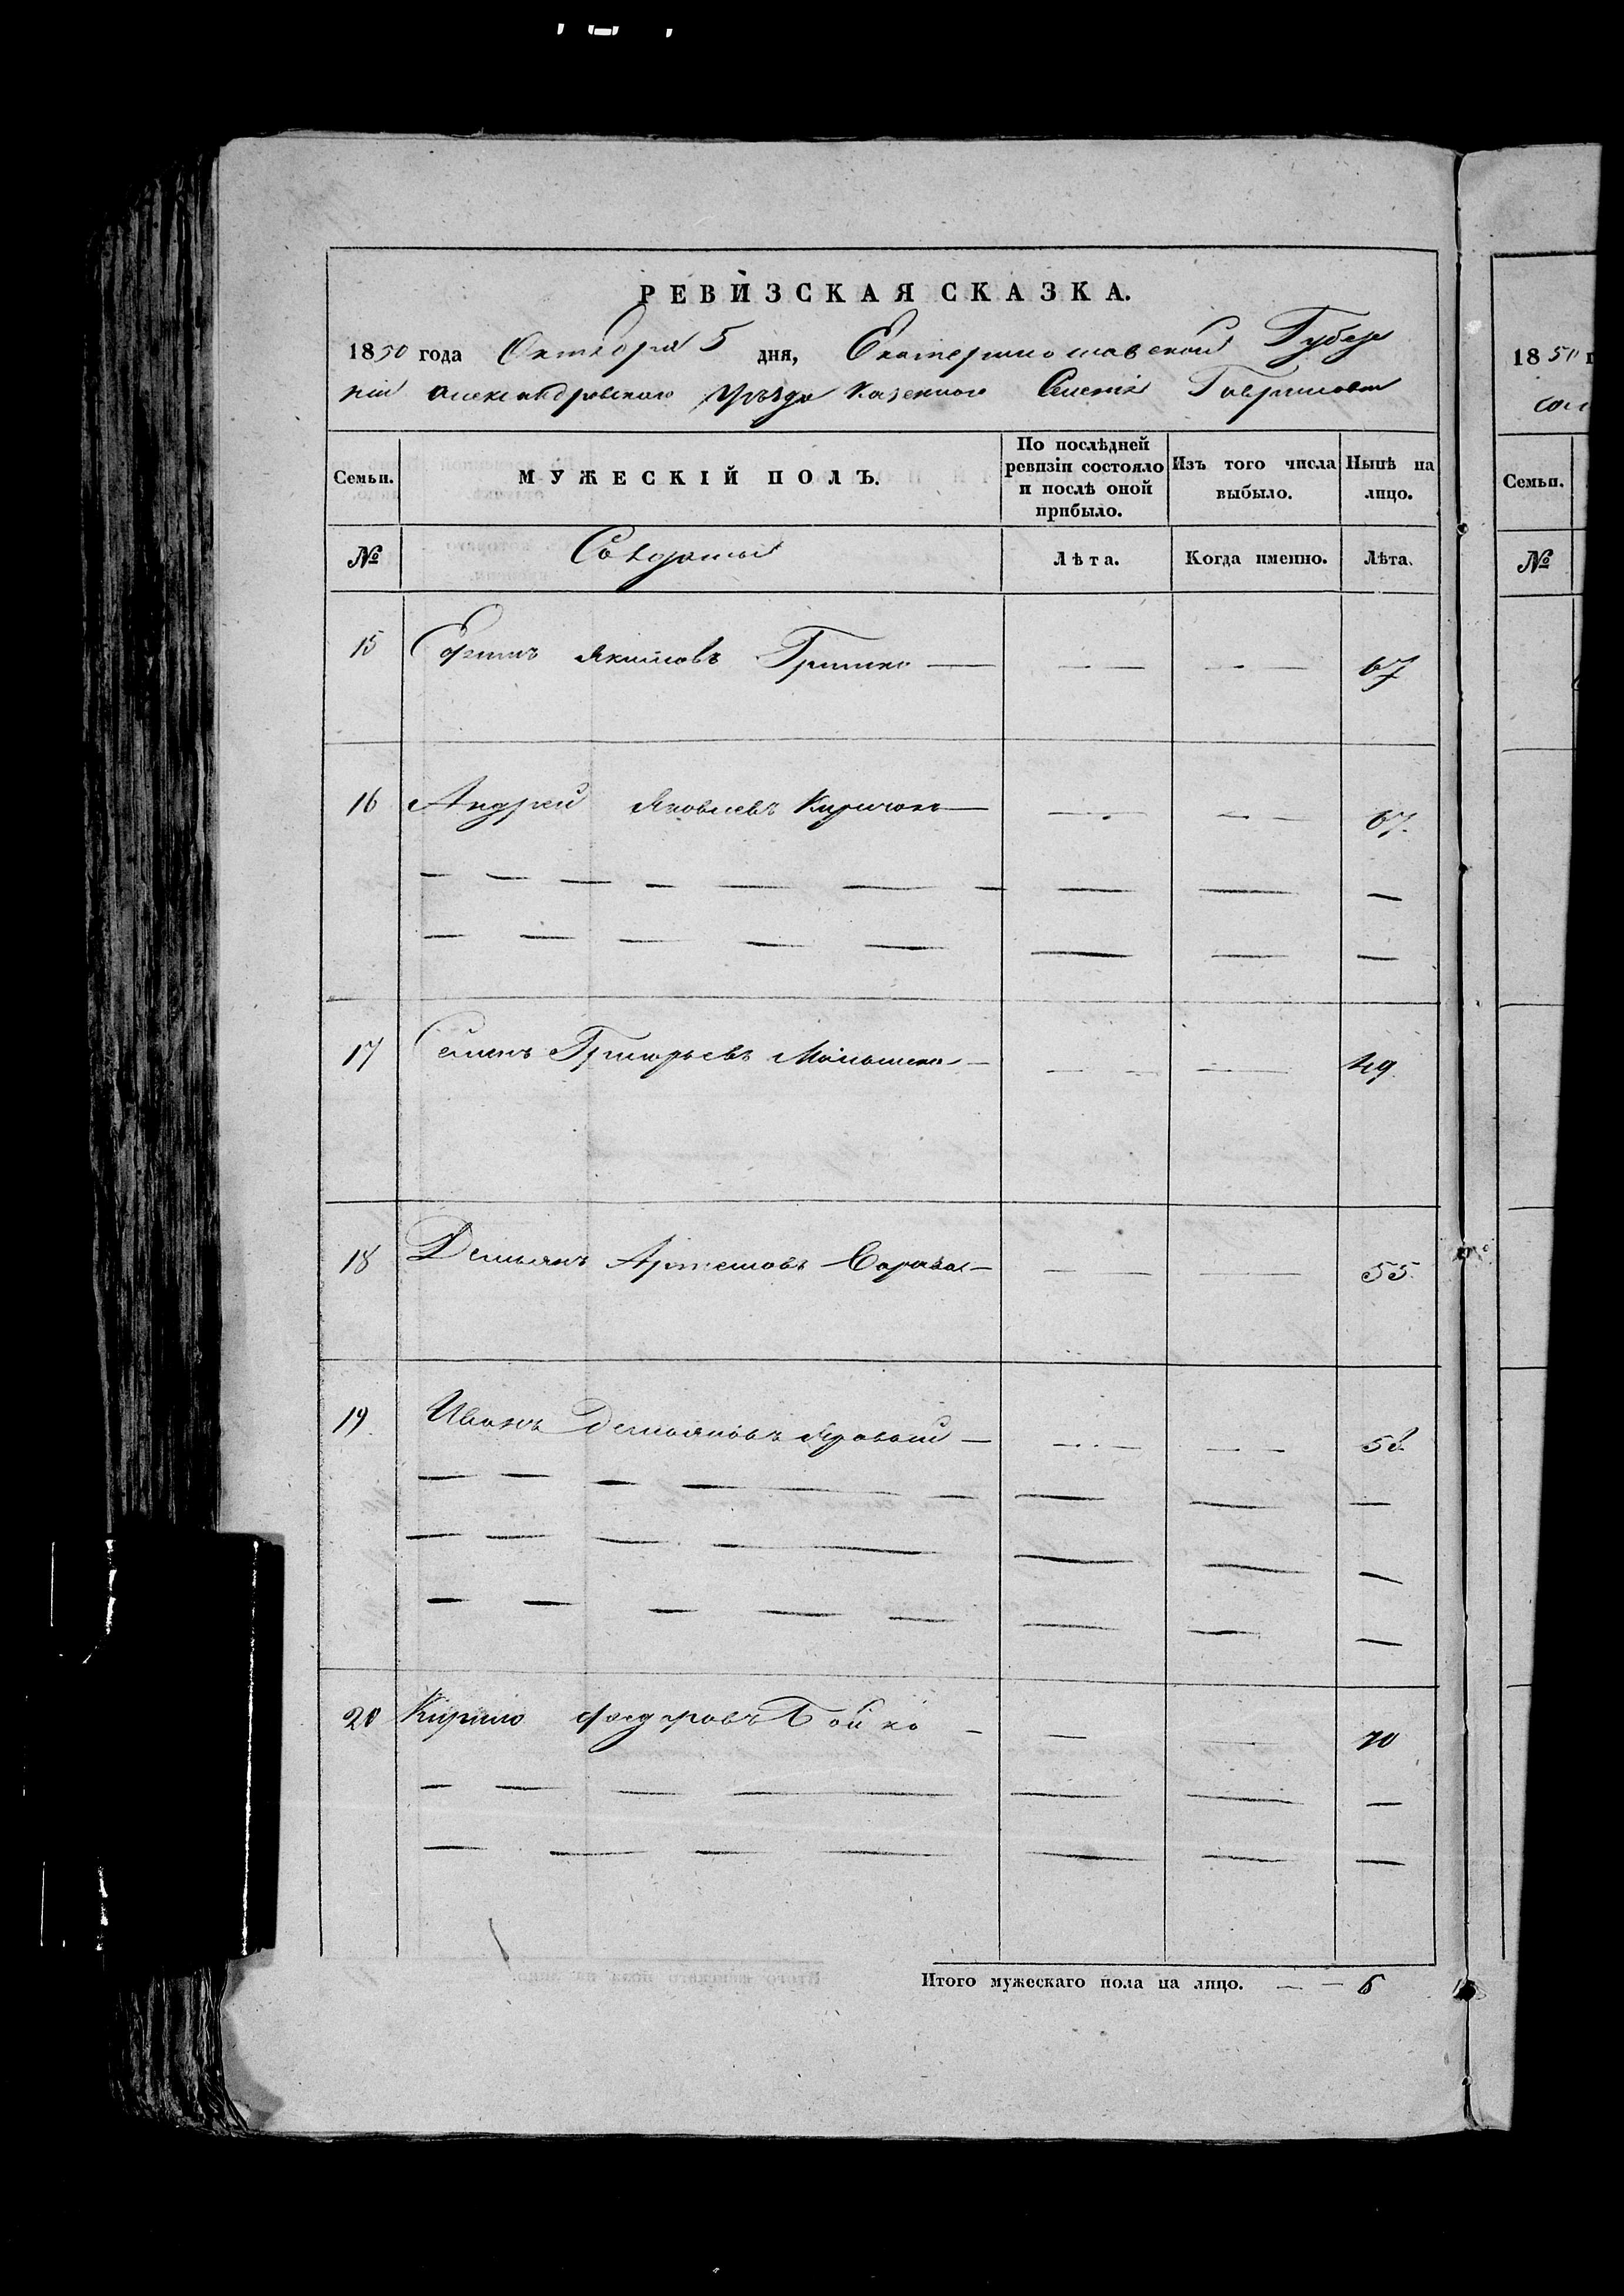 РЕВИЗСКАЯ СКАЗКА.
1850 года Октября 5 дня, Екатеринославской Губер
ніи Александровского Уѣзда Казенного Селенія Гавриловки
Семьи. МУЖЕСКІЙ ПОЛЪ. По послѣдней ревизіи состояло и послѣ оной прибыло. Изъ того числа выбыло. Нынѣ на лицо.
№ Солдаты Лѣта. Когда именно. Лѣта.
15 Якимовъ Гришко — — — — — 67
16 Андрей Яковлевъ Киричокъ — — — — — 67.
17 Семенъ Григорьевъ — — — — 49
18 Демьянъ Артемовъ — — — — 55.
19. Иванъ Демьяновъ Яровый — — — — — 58.
20 Кирило Федоровъ Бойко — — — 70
Итого мужескаго пола на лицо. — — 6
1850 г
Семьи.
№